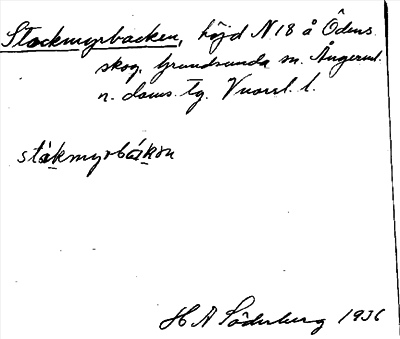 Stockmyrbacken, höjd N 18 å Ödens
skog. Grundsunda sn. Ångerml.
n. doms. tg. Vnorrl. l.
ståkmyrbákən
H A Söderberg 1936